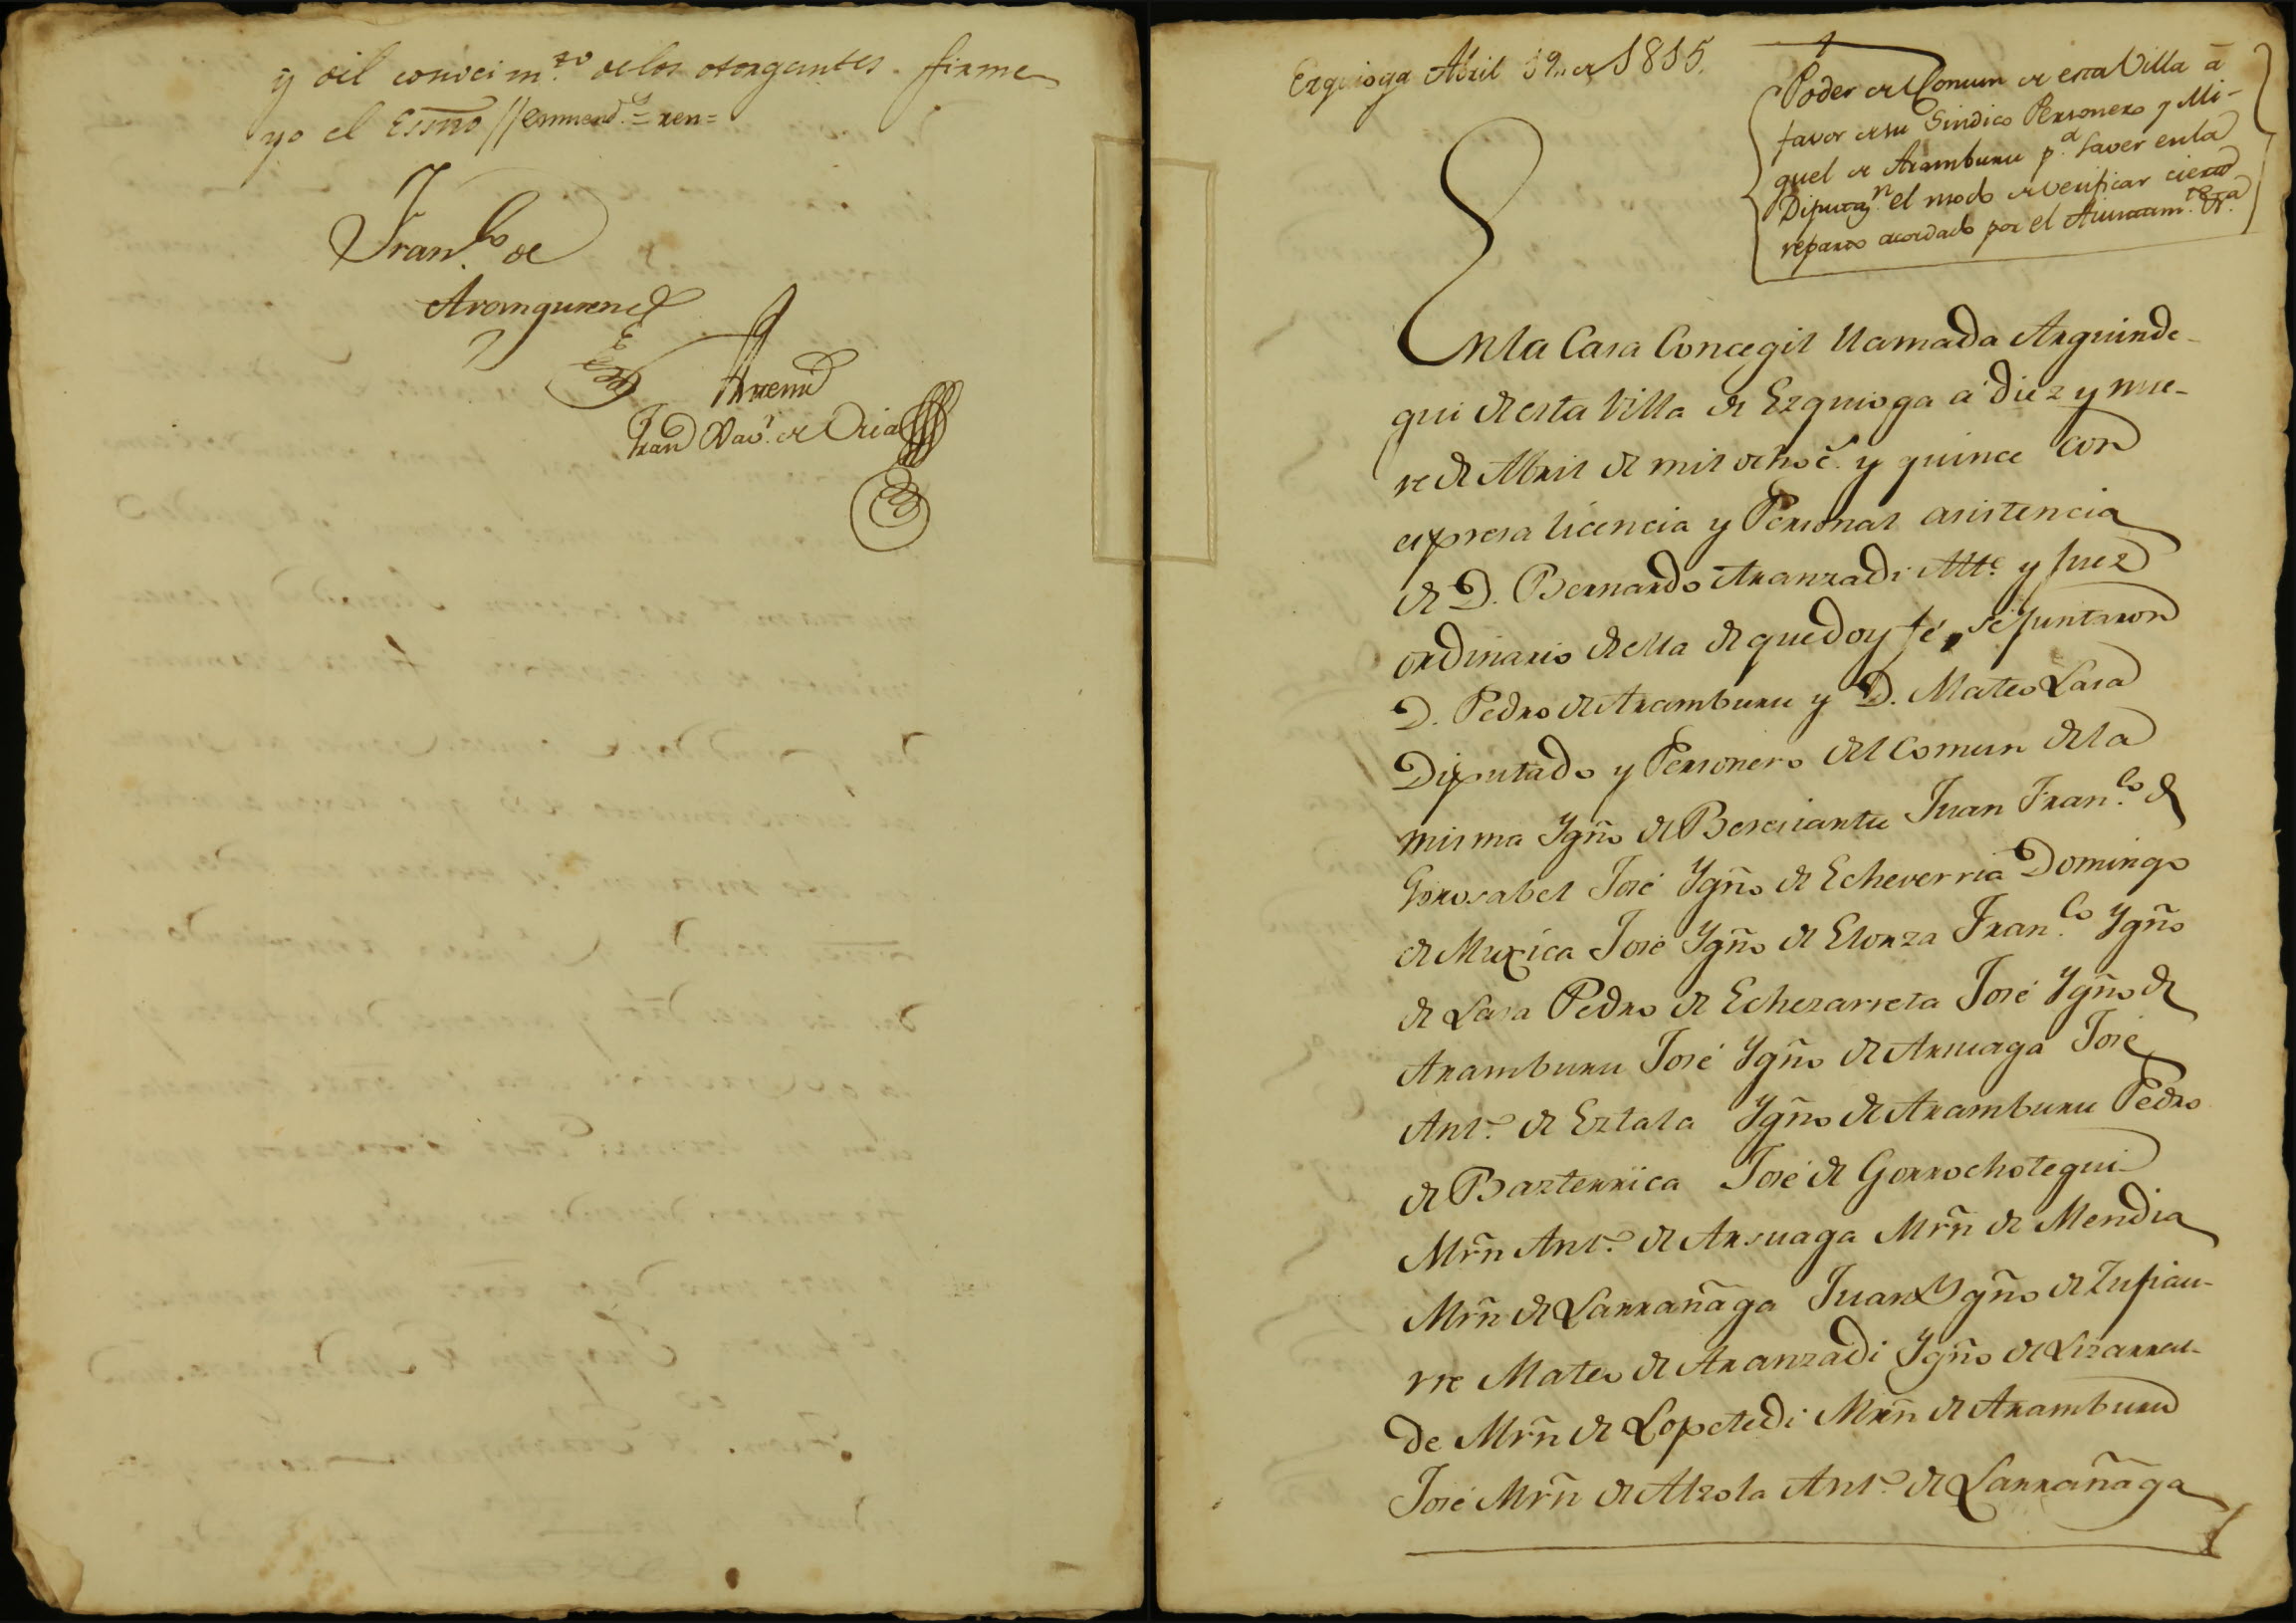 y del conocim.to de los otorgantes. firme
yo el Essno // enmend.o = ren =
Fran.co de
Aranguren
Ante mi
Fran.co Xav.r de Oria
Ezquioga Abril 19,, de 1815.
Poder del Comun de esta Villa á
favor de su Sindico Personero y Mi-
guel de Aramburu p.a saver en la
Diputaz.n el modo de verificar cierto
reparto acordado por el Aiuntam.to &.a
En la Casa Concegil llamada Arguinde-
gui de esta Villa de Ezquioga á diez y nue-
ve de Abril de mil ochoc.s y quince con
expresa licencia y Personal asistencia
de D. Bernardo Aranzadi Alc.e y Juez
ordinario de ella de que doy fé, se juntaron
D. Pedro de Aramburu y D. Mateo Lasa
Diputado y Personero del Comun de la
misma Ygño de Bereciartu Juan Fran.co de
Gorosabel José Ygño de Echeverria Domingo
de Muxica José Ygño de Elorza Fran.co Ygño
de Lasa Pedro de Echezarreta José Ygño de
Aramburu José Ygño de Arsuaga José
Ant.o de Eztala Ygño de Aramburu Pedro
de Bazterrica José de Gorrochotegui
Mrñ Ant.o de Arsuaga Mrñ de Mendia
Mrñ de Larrañaga Juan Ygño de Zufiau-
rre Mateo de Aranzadi Ygño de Lizarral-
de Mrñ de Lopetedi Mrñ de Aramburu
José Mrñ de Alzola Ant.o de Larrañaga